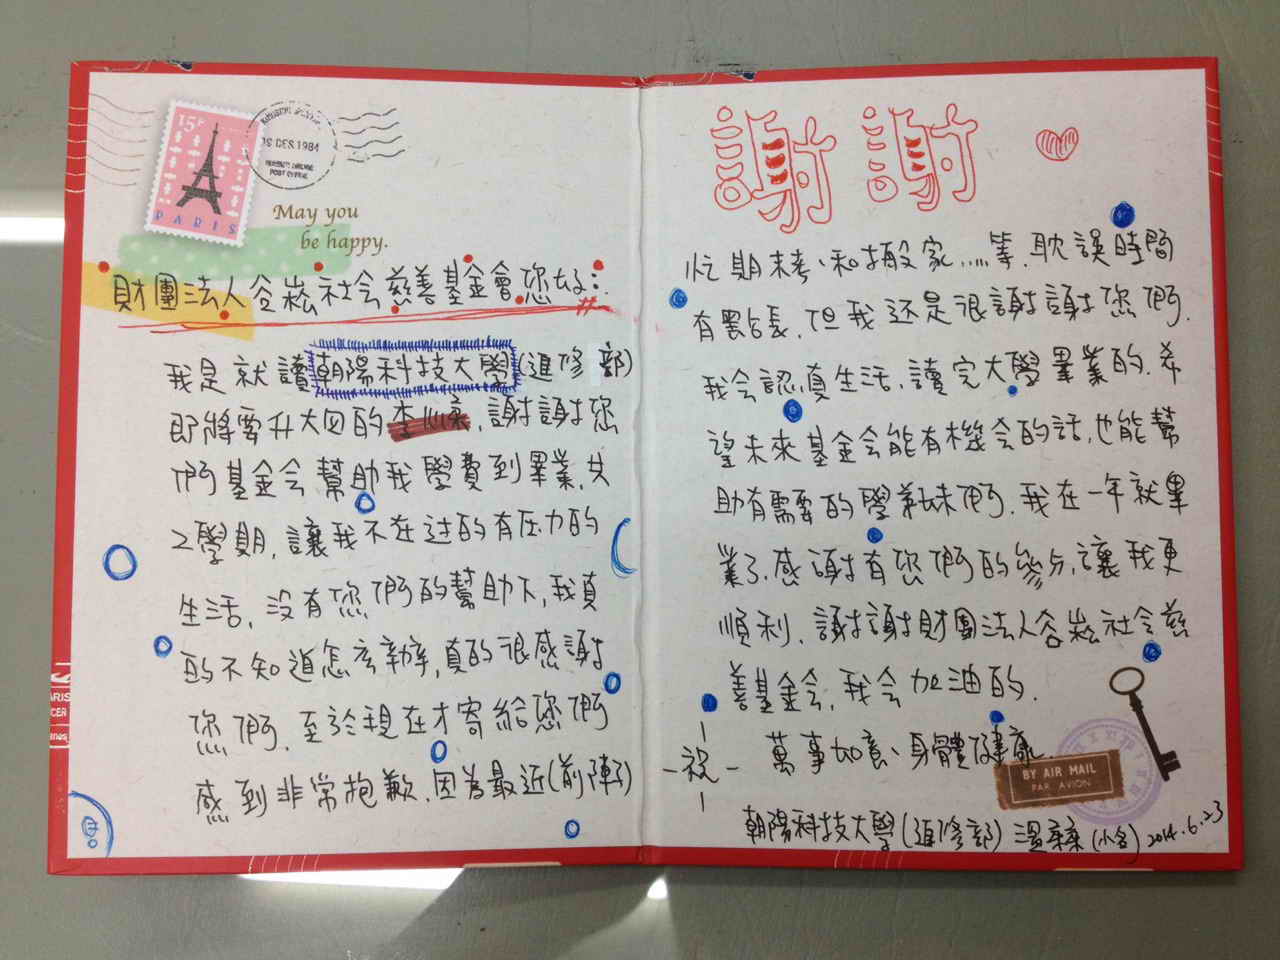 15F
PARIS
DES.1984
POST CYPRUS
May you
be happy.
財團法人谷崧社会慈善基金會您好:
我是就讀朝陽科技大學(進修部)
即將要升大四的,謝謝您
們基金会幫助我學費到畢業,共
2學期,讓我不在过的有压力的
生活,没有您們的幫助下,我真
的不知道怎么辦,真的很感謝
您們,至於現在才寄給您們
感到非常抱歉,因為最近(前陣子)
謝謝
忙期末考、和搬家……等,耽誤時間
有點長,但我还是很謝謝您們,
我会認真生活,讀完大學畢業的,希
望未來基金会能有機会的話,也能幫
助有需要的學弟妹們,我在一年就畢
業了,感謝有您們的參与,讓我更
順利,謝謝財團法人谷崧社会慈
善基金会,我会加油的.
祝 萬事如意、身體健康
BY AIR MAIL
PAR AVION
朝陽科技大學(進修部)溫柔(小名)2014.6.23